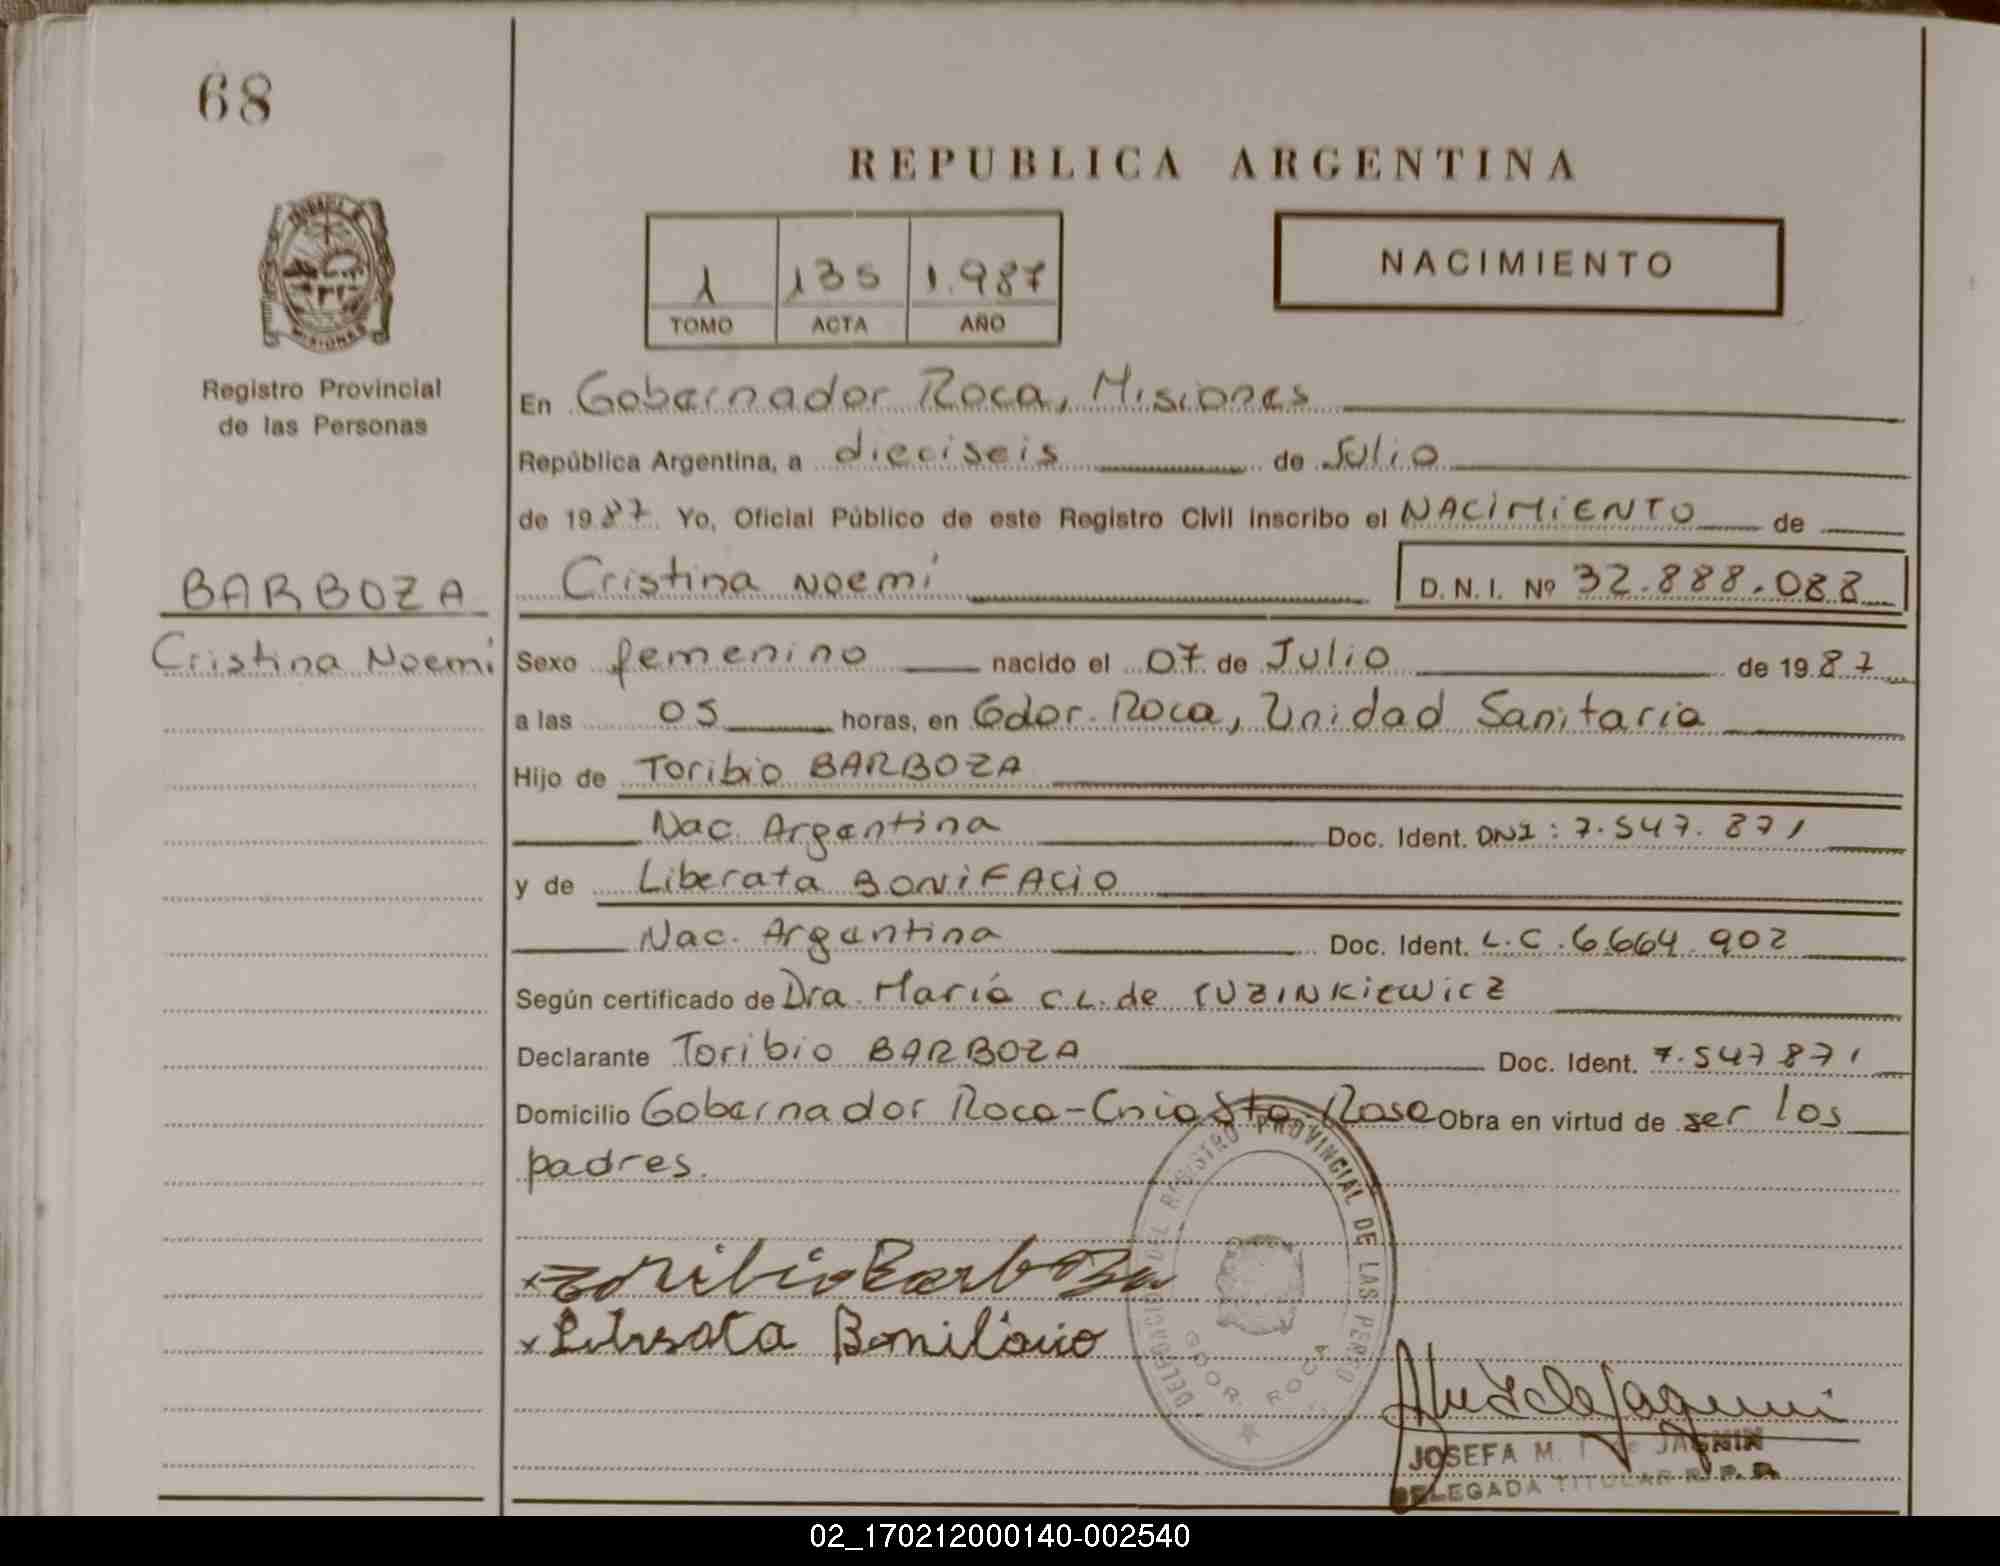 68
REPUBLICA ARGENTINA
1 135 1.987
TOMO ACTA AÑO
NACIMIENTO
MISIONES
Registro Provincial
de las Personas
BARBOZA
Cristina Noemí
En Gobernador Roca, Misiones
República Argentina, a dieciseis de Julio
de 1987 Yo, Oficial Público de este Registro Civil inscribo el NACIMIENTO de
Cristina Noemí D. N. I. Nº 32.888.088
Sexo femenino nacido el 07 de Julio de 1987
a las 05 horas, en Gdor. Roca, Unidad Sanitaria
Hijo de Toribio BARBOZA
Nac. Argentina Doc. Ident. DNI: 7.547.871
y de Liberata BONIFACIO
Nac. Argentina Doc. Ident. L.C. 6.664.902
Según certificado de Dra. María C.L. de
Declarante Toribio BARBOZA Doc. Ident. 7.547871
Domicilio Gobernador Roca-Cnia Sta. Rosa Obra en virtud de ser los
padres.
DELEGACION DEL REGISTRO PROVINCIAL DE LAS PERSO
GDOR. ROCA
x Toribio Barboza
x Liberata Bonifacio
JOSEFA M. de JAGMIN
DELEGADA TITULAR R. P. P.
02_170212000140-002540